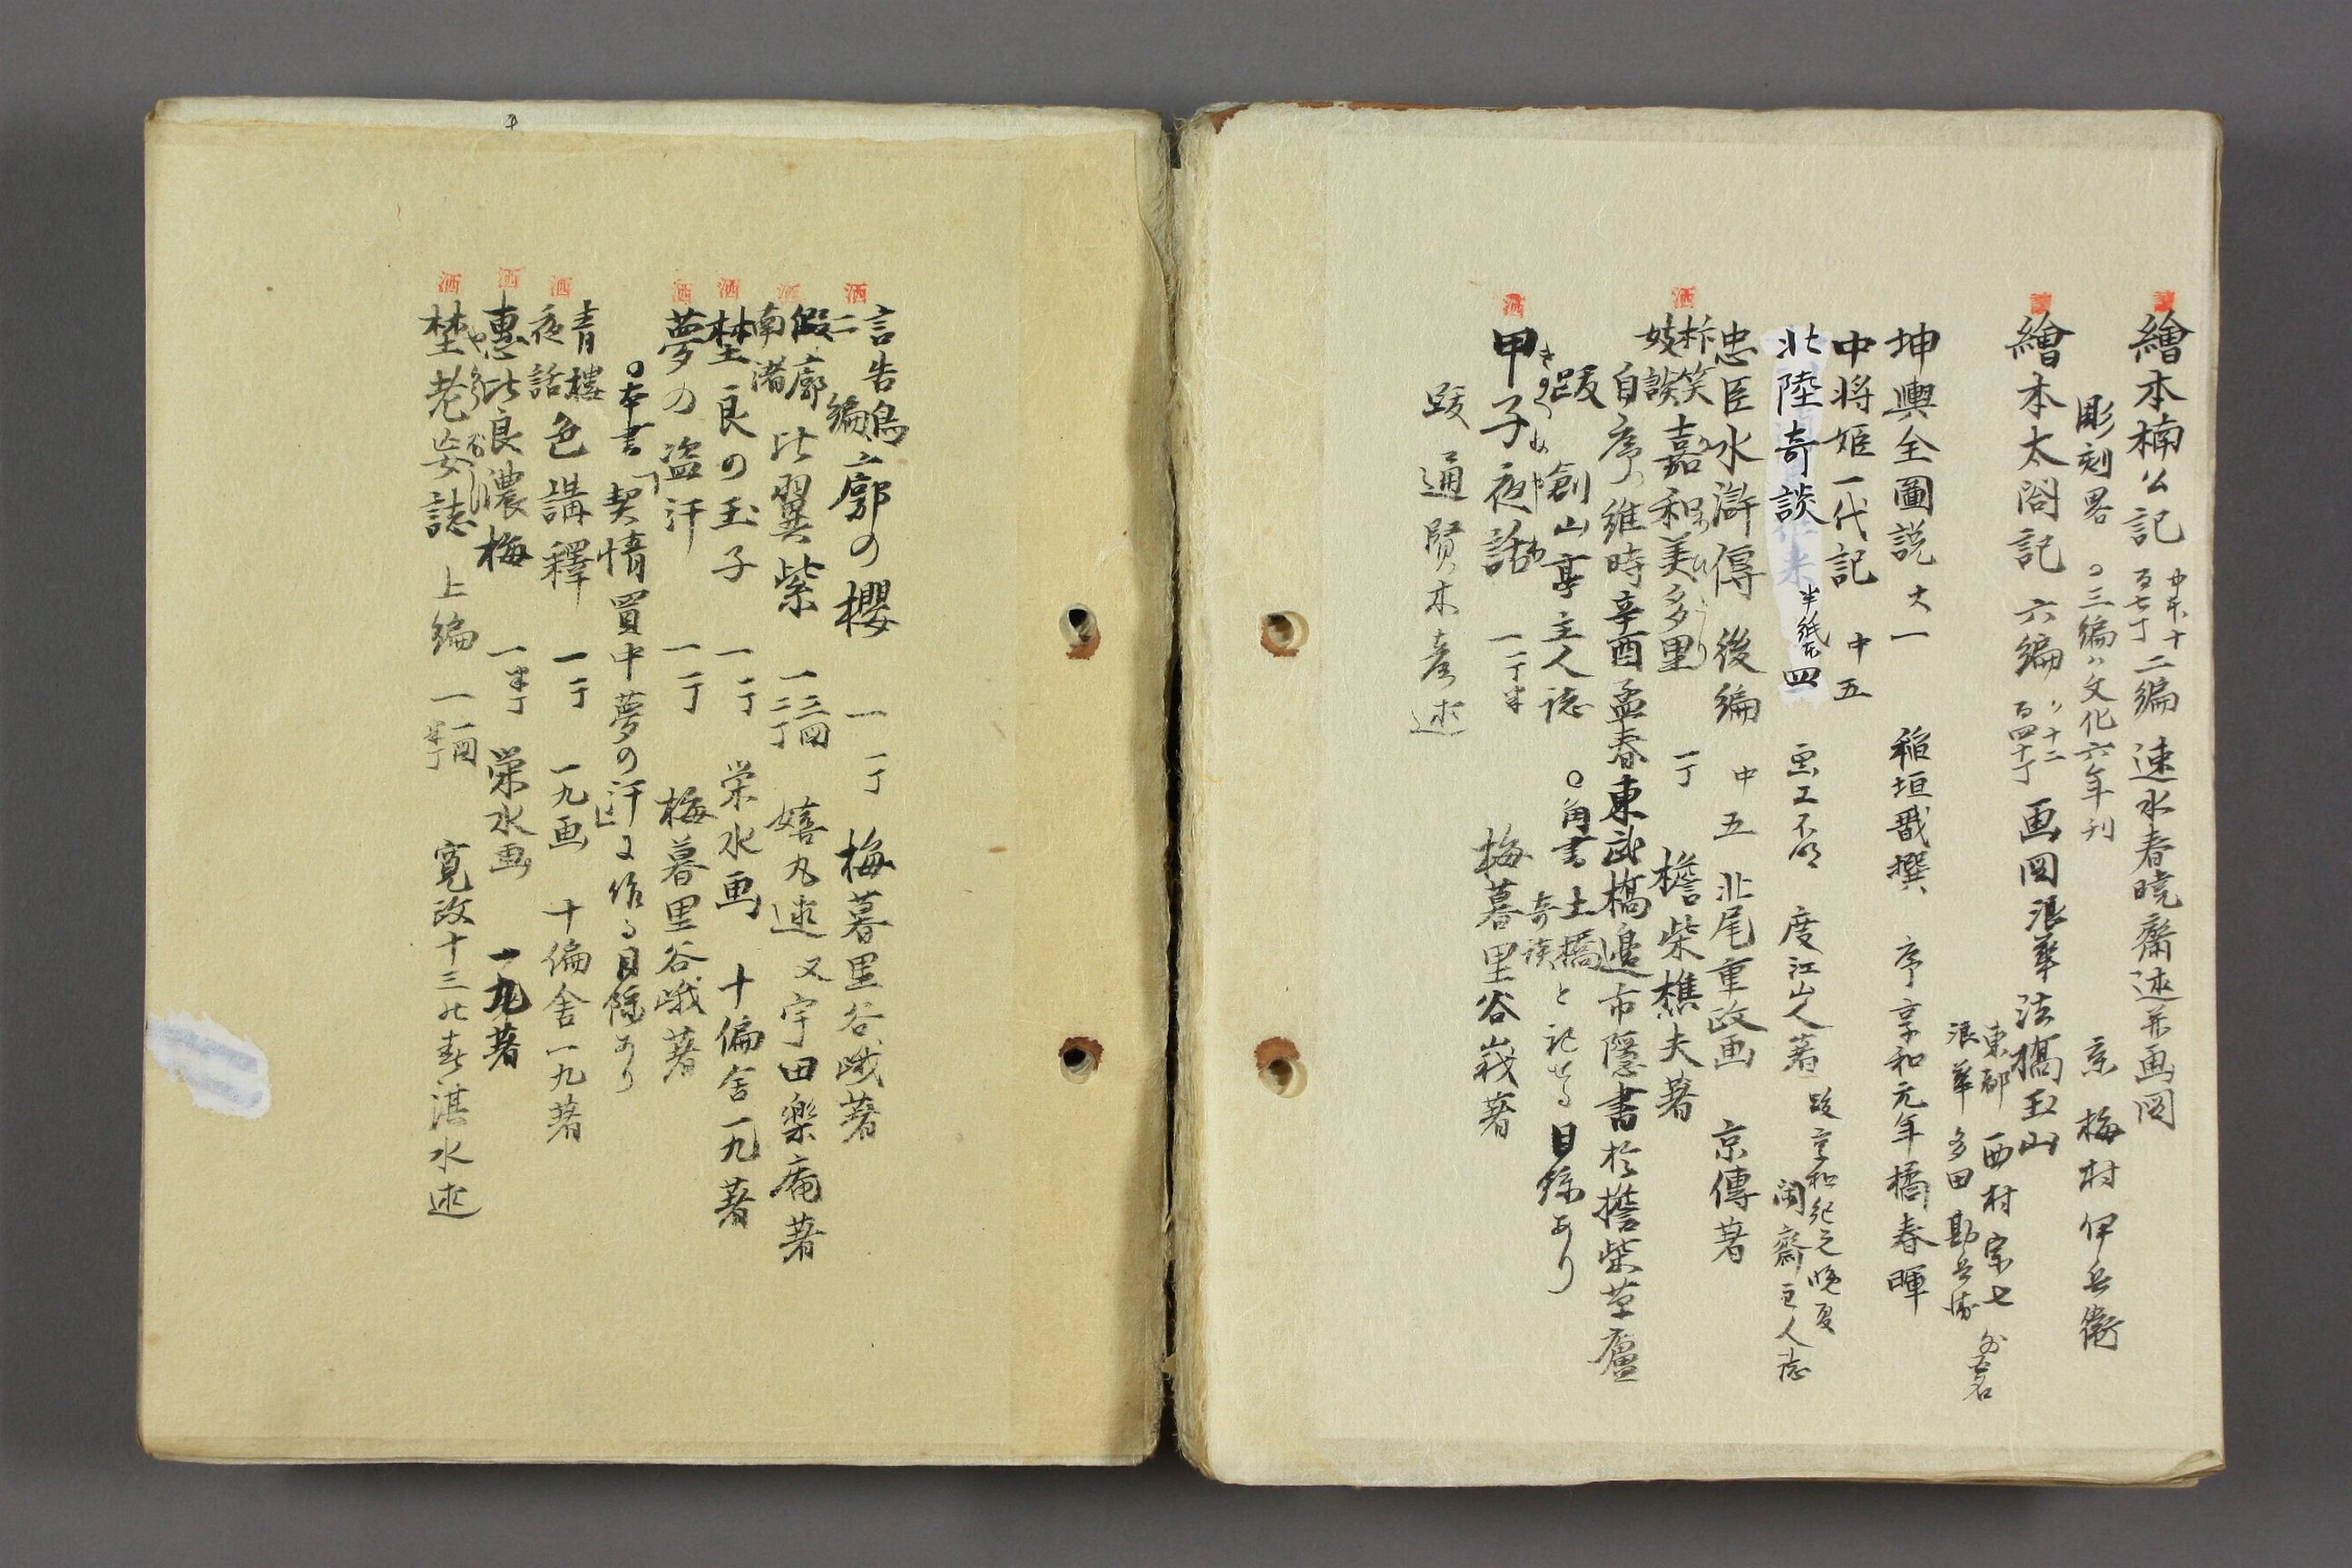 繪本楠公記 中本十二編 百七丁 速水春暁齋述并画図
彫刻畧 ○三編ハ文化六年刊 京 梅村伊兵衛
繪本太閤記 六編 〃十二 百四十丁 画図浪華法橋玉山
東都 西村宗七
浪華 多田勘兵衛 外五名
坤輿全圖説 大一 稲垣戩撰 序享和元年橘春暉
中将姫一代記 中五
北陸奇談 半紙本四 画工不明 度江山人著 跋享和紀元晩夏
閑齋主人誌
忠臣水滸傳 後編 中五 北尾重政画 京傳著
柝笑
妓談 嘉和美多里 一丁 檐柴樵夫著
自序ハ維時辛酉孟春東武橋邉市隠書於擔柴草廬
跋 創山亭主人誌 ○角書 土橋 奇談 と記せる目録あり
甲子夜話 一 一丁半 梅暮里谷峩著
跋 通賢木彦述
洒 言告鳥 二編 廓の櫻 一 一丁 梅暮里谷峨著
洒 假廓 南渚 比翼紫 一 三図 二丁 嬉丸述 又宇田樂庵著
洒 埜良の玉子 一 一丁 栄水画 十偏舎一九著
洒 夢の盗汗 一 一丁 梅暮里谷峨著
○本書「契情買中夢の汗」に作る目録あり
洒 青樓 夜話 色講釋 一 一丁 一九画 十偏舎一九著
洒 惠比良濃梅 一 半丁 栄水画 一九著
洒 埜老妄誌 上編 一 一図 半丁 寛政十三の春湛水述